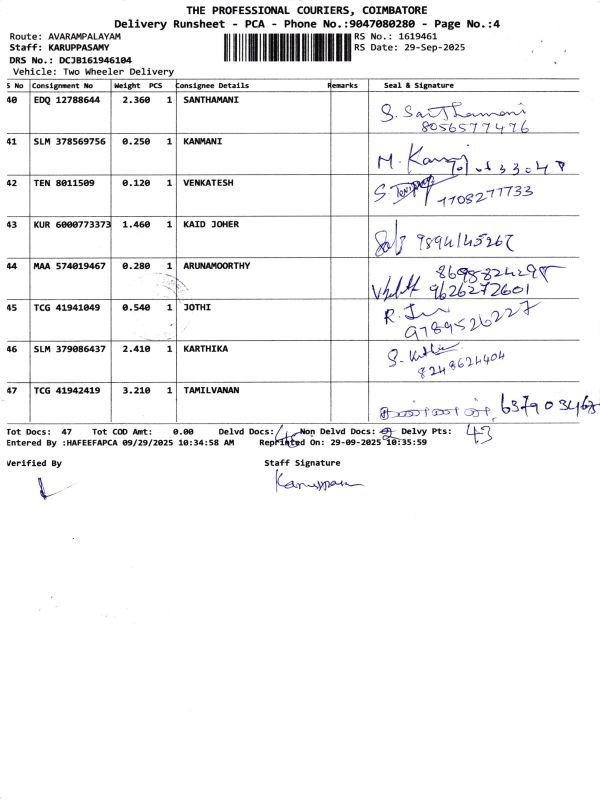 THE PROFESSIONAL COURIERS, COIMBATORE
Delivery Runsheet - PCA - Phone No.:9047080280 - Page No.:4
Route: AVARAMPALAYAM RS No.: 1619461
Staff: KARUPPASAMY RS Date: 29-Sep-2025
DRS No.: DCJB161946104
Vehicle: Two Wheeler Delivery
S No Consignment No Weight PCS Consignee Details Remarks Seal & Signature
40 EDQ 12788644 2.360 1 SANTHAMANI S. Santhamani
8056577476
41 SLM 378569756 0.250 1 KANMANI M.
42 TEN 8011509 0.120 1 VENKATESH S. 7708277733
43 KUR 6000773373 1.460 1 KAID JOHER 9894145267
44 MAA 574019467 0.280 1 ARUNAMOORTHY
9626272601
45 TCG 41941049 0.540 1 JOTHI R.
9789526227
46 SLM 379086437 2.410 1 KARTHIKA S.
8248624404
47 TCG 41942419 3.210 1 TAMILVANAN
Tot Docs: 47 Tot COD Amt: 0.00 Delvd Docs: Non Delvd Docs: 2 Delvy Pts: 43
Entered By :HAFEEFAPCA 09/29/2025 10:34:58 AM Reprinted On: 29-09-2025 10:35:59
Verified By Staff Signature